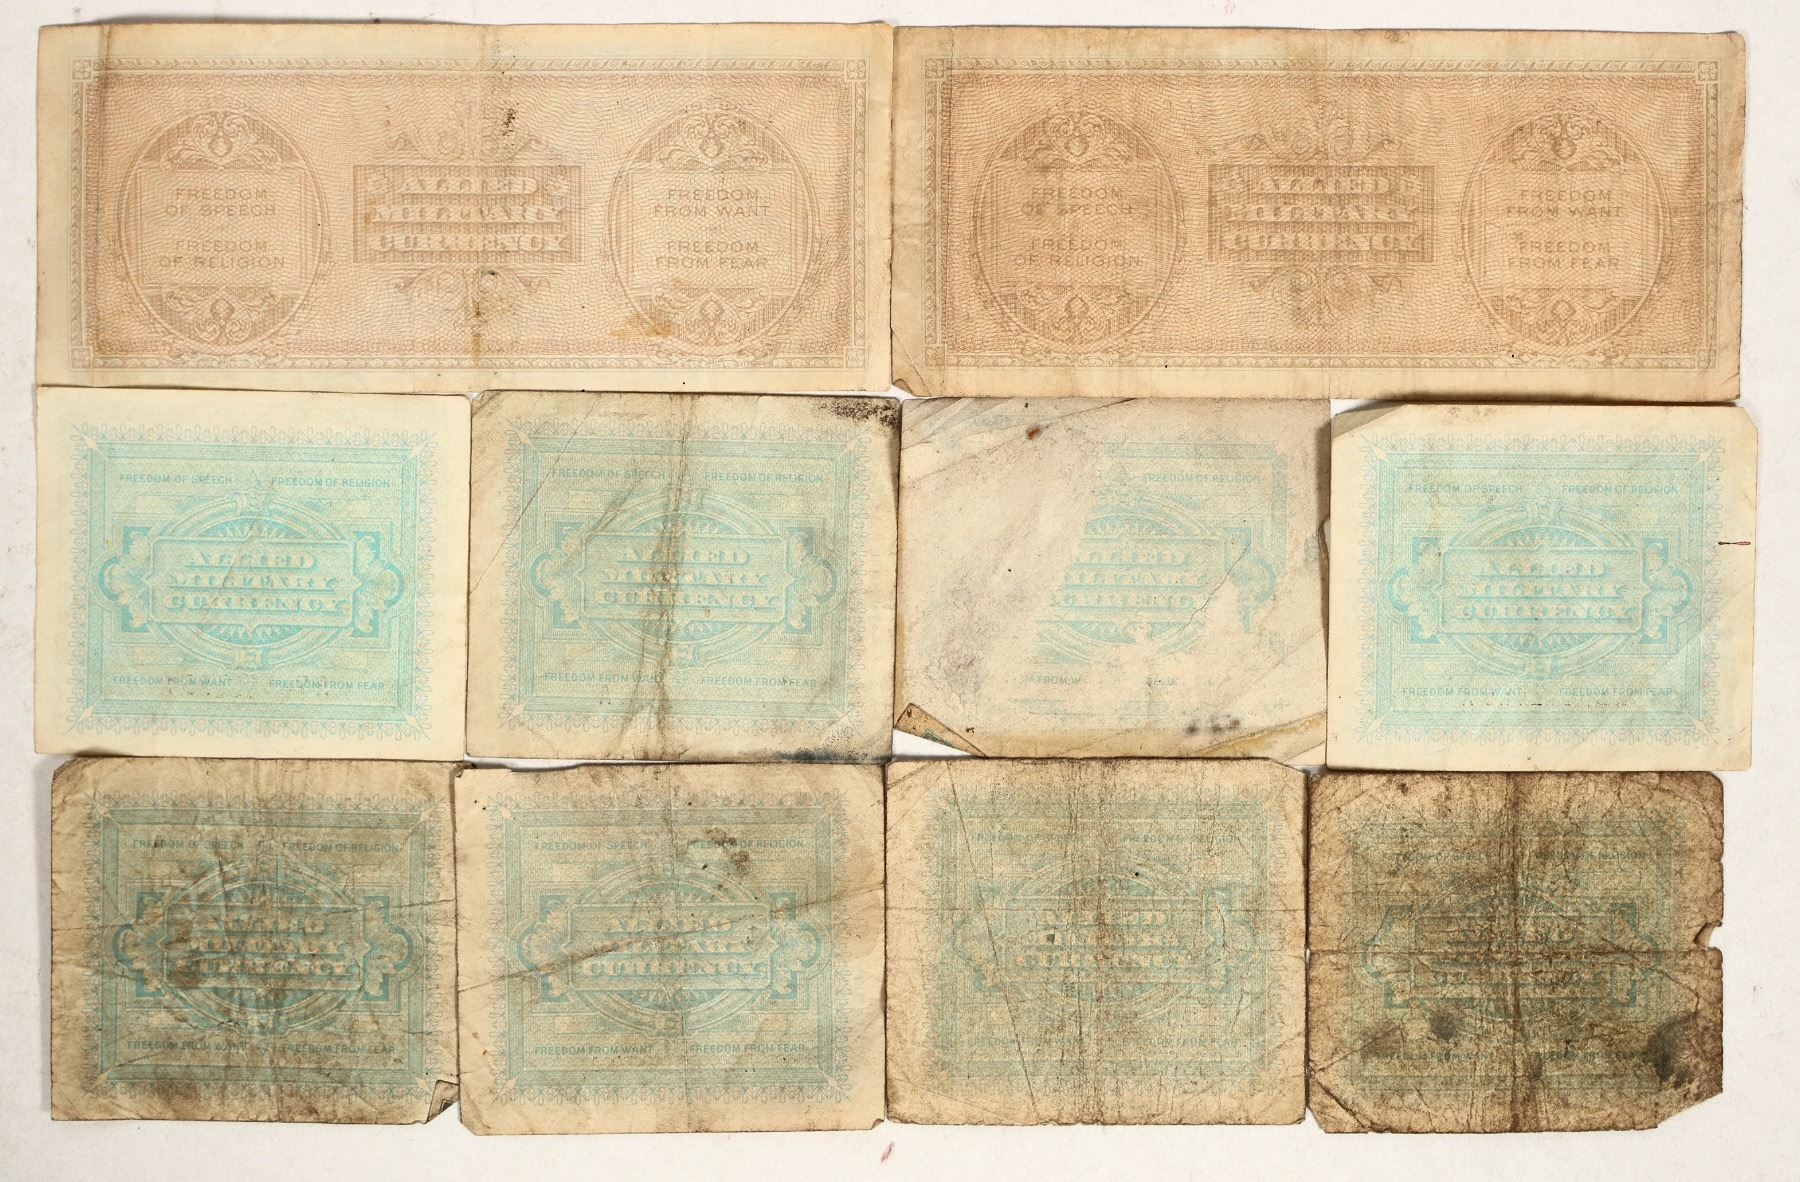 FREEDOM
OF SPEECH
FREEDOM
OF RELIGION
ALLIED
MILITARY
CURRENCY
FREEDOM
FROM WANT
FREEDOM
FROM FEAR
FREEDOM
OF SPEECH
FREEDOM
OF RELIGION
ALLIED
MILITARY
CURRENCY
FREEDOM
FROM WANT
FREEDOM
FROM FEAR
FREEDOM OF SPEECH FREEDOM OF RELIGION
ALLIED
MILITARY
CURRENCY
FREEDOM FROM WANT FREEDOM FROM FEAR
FREEDOM OF SPEECH FREEDOM OF RELIGION
ALLIED
MILITARY
CURRENCY
FREEDOM FROM WANT FREEDOM FROM FEAR
FREEDOM OF RELIGION
LLIED
MILITARY
URRENC
OM FROM W
FREEDOM OF SPEECH FREEDOM OF RELIGION
ALLIED
MILITARY
CURRENCY
FREEDOM FROM WANT FREEDOM FROM FEAR
FREEDOM OF SPEECH FREEDOM OF RELIGION
ALLIED
MILITARY
CURRENCY
FREEDOM FROM WANT FREEDOM FROM FEAR
FREEDOM OF SPEECH FREEDOM OF RELIGION
ALLIED
MILITARY
CURRENCY
FREEDOM FROM WANT FREEDOM FROM FEAR
FREEDOM OF SPEECH FREEDOM OF RELIGION
ALLIED
MILITARY
CURRENCY
FREEDOM FROM WANT FREEDOM FROM FEAR
FREEDOM OF SPEECH FREEDOM OF RELIGION
ALLIED
MILITARY
CURRENCY
FREEDOM FROM WANT FREEDOM FROM FEAR